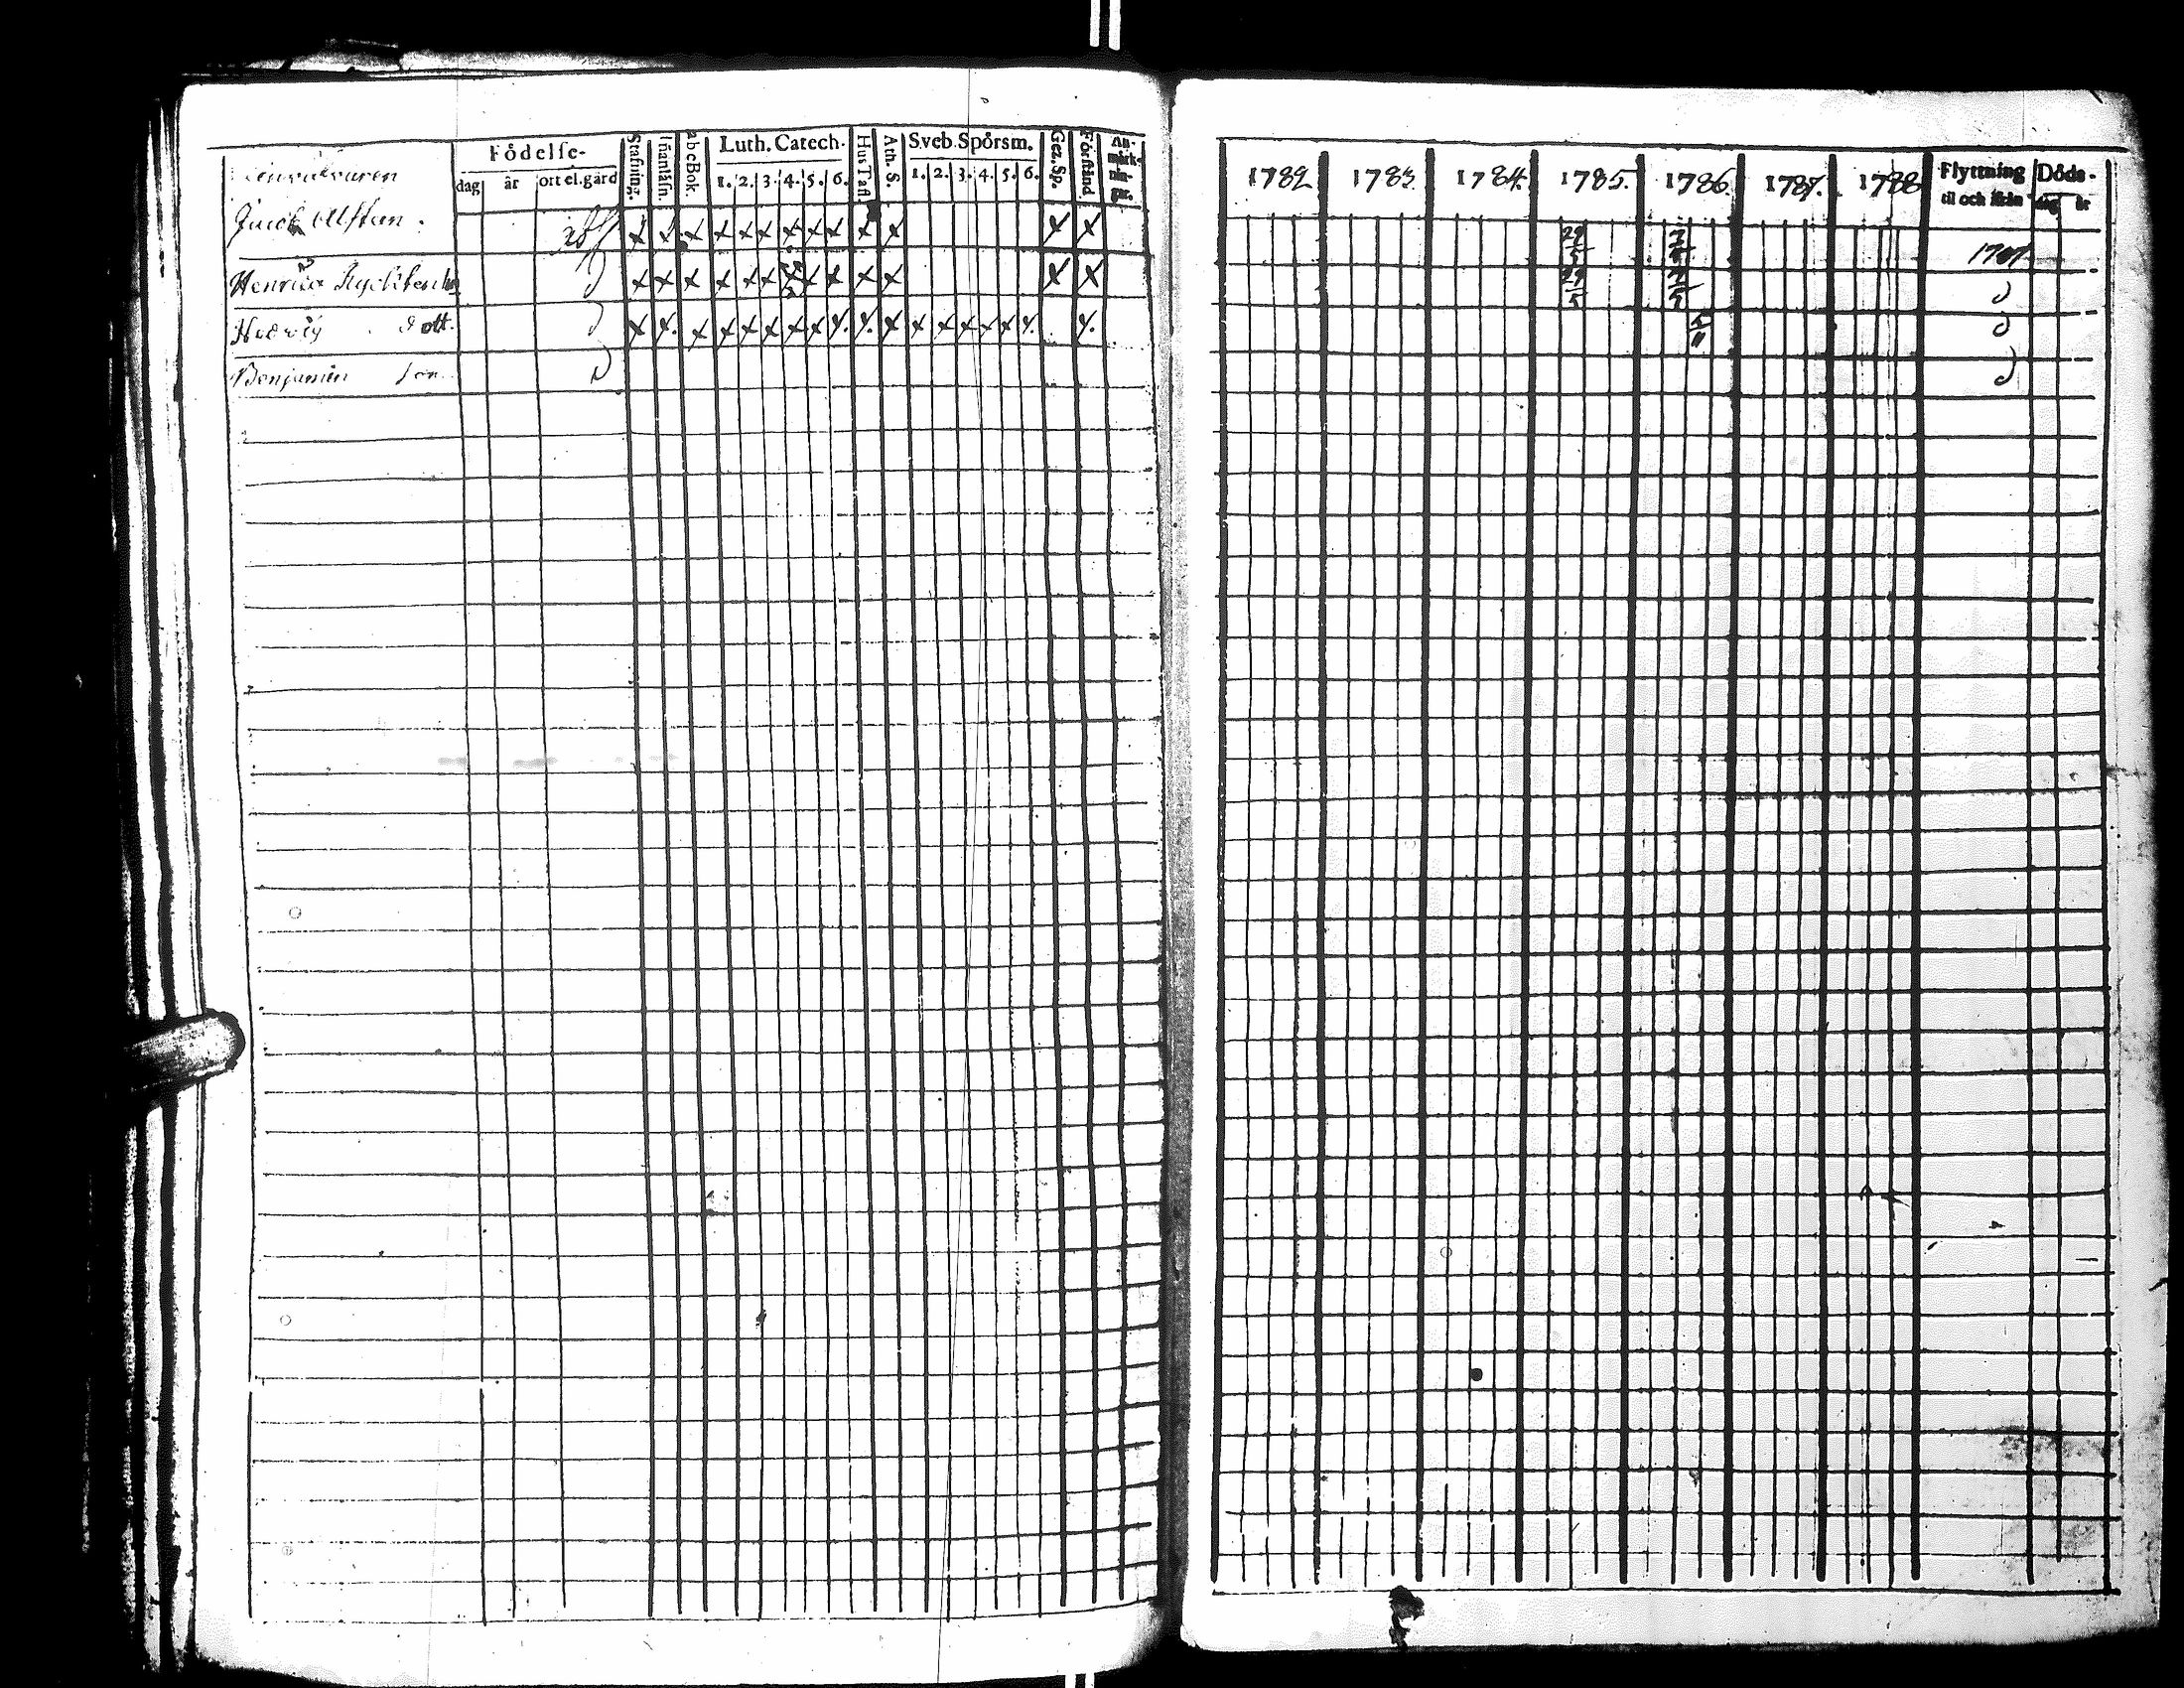 Födelse-
dag år ort el. gård
Stafning.
Innanläsn.
abcBok.
Luth. Catech.
1. 2. 3. 4. 5. 6.
Hus Tafl.
Ath. S.
Sveb. Spörsm.
1. 2. 3. 4. 5. 6.
Gez. Sp.
Förstånd
An-
märk-
nin-
gar.
1782. 1783. 1784. 1785. 1786. 1787. 1788
Flyttning
til och ifrån
Döds-
dag år
Jacob Alftan. x x x x x x x x x x x x x 29/5 1787
Henrica x x x x x x x x x x x x x 29/5
Hedvig dott. x x x x x x x x x x x x x x x x x x
Benjamin son.